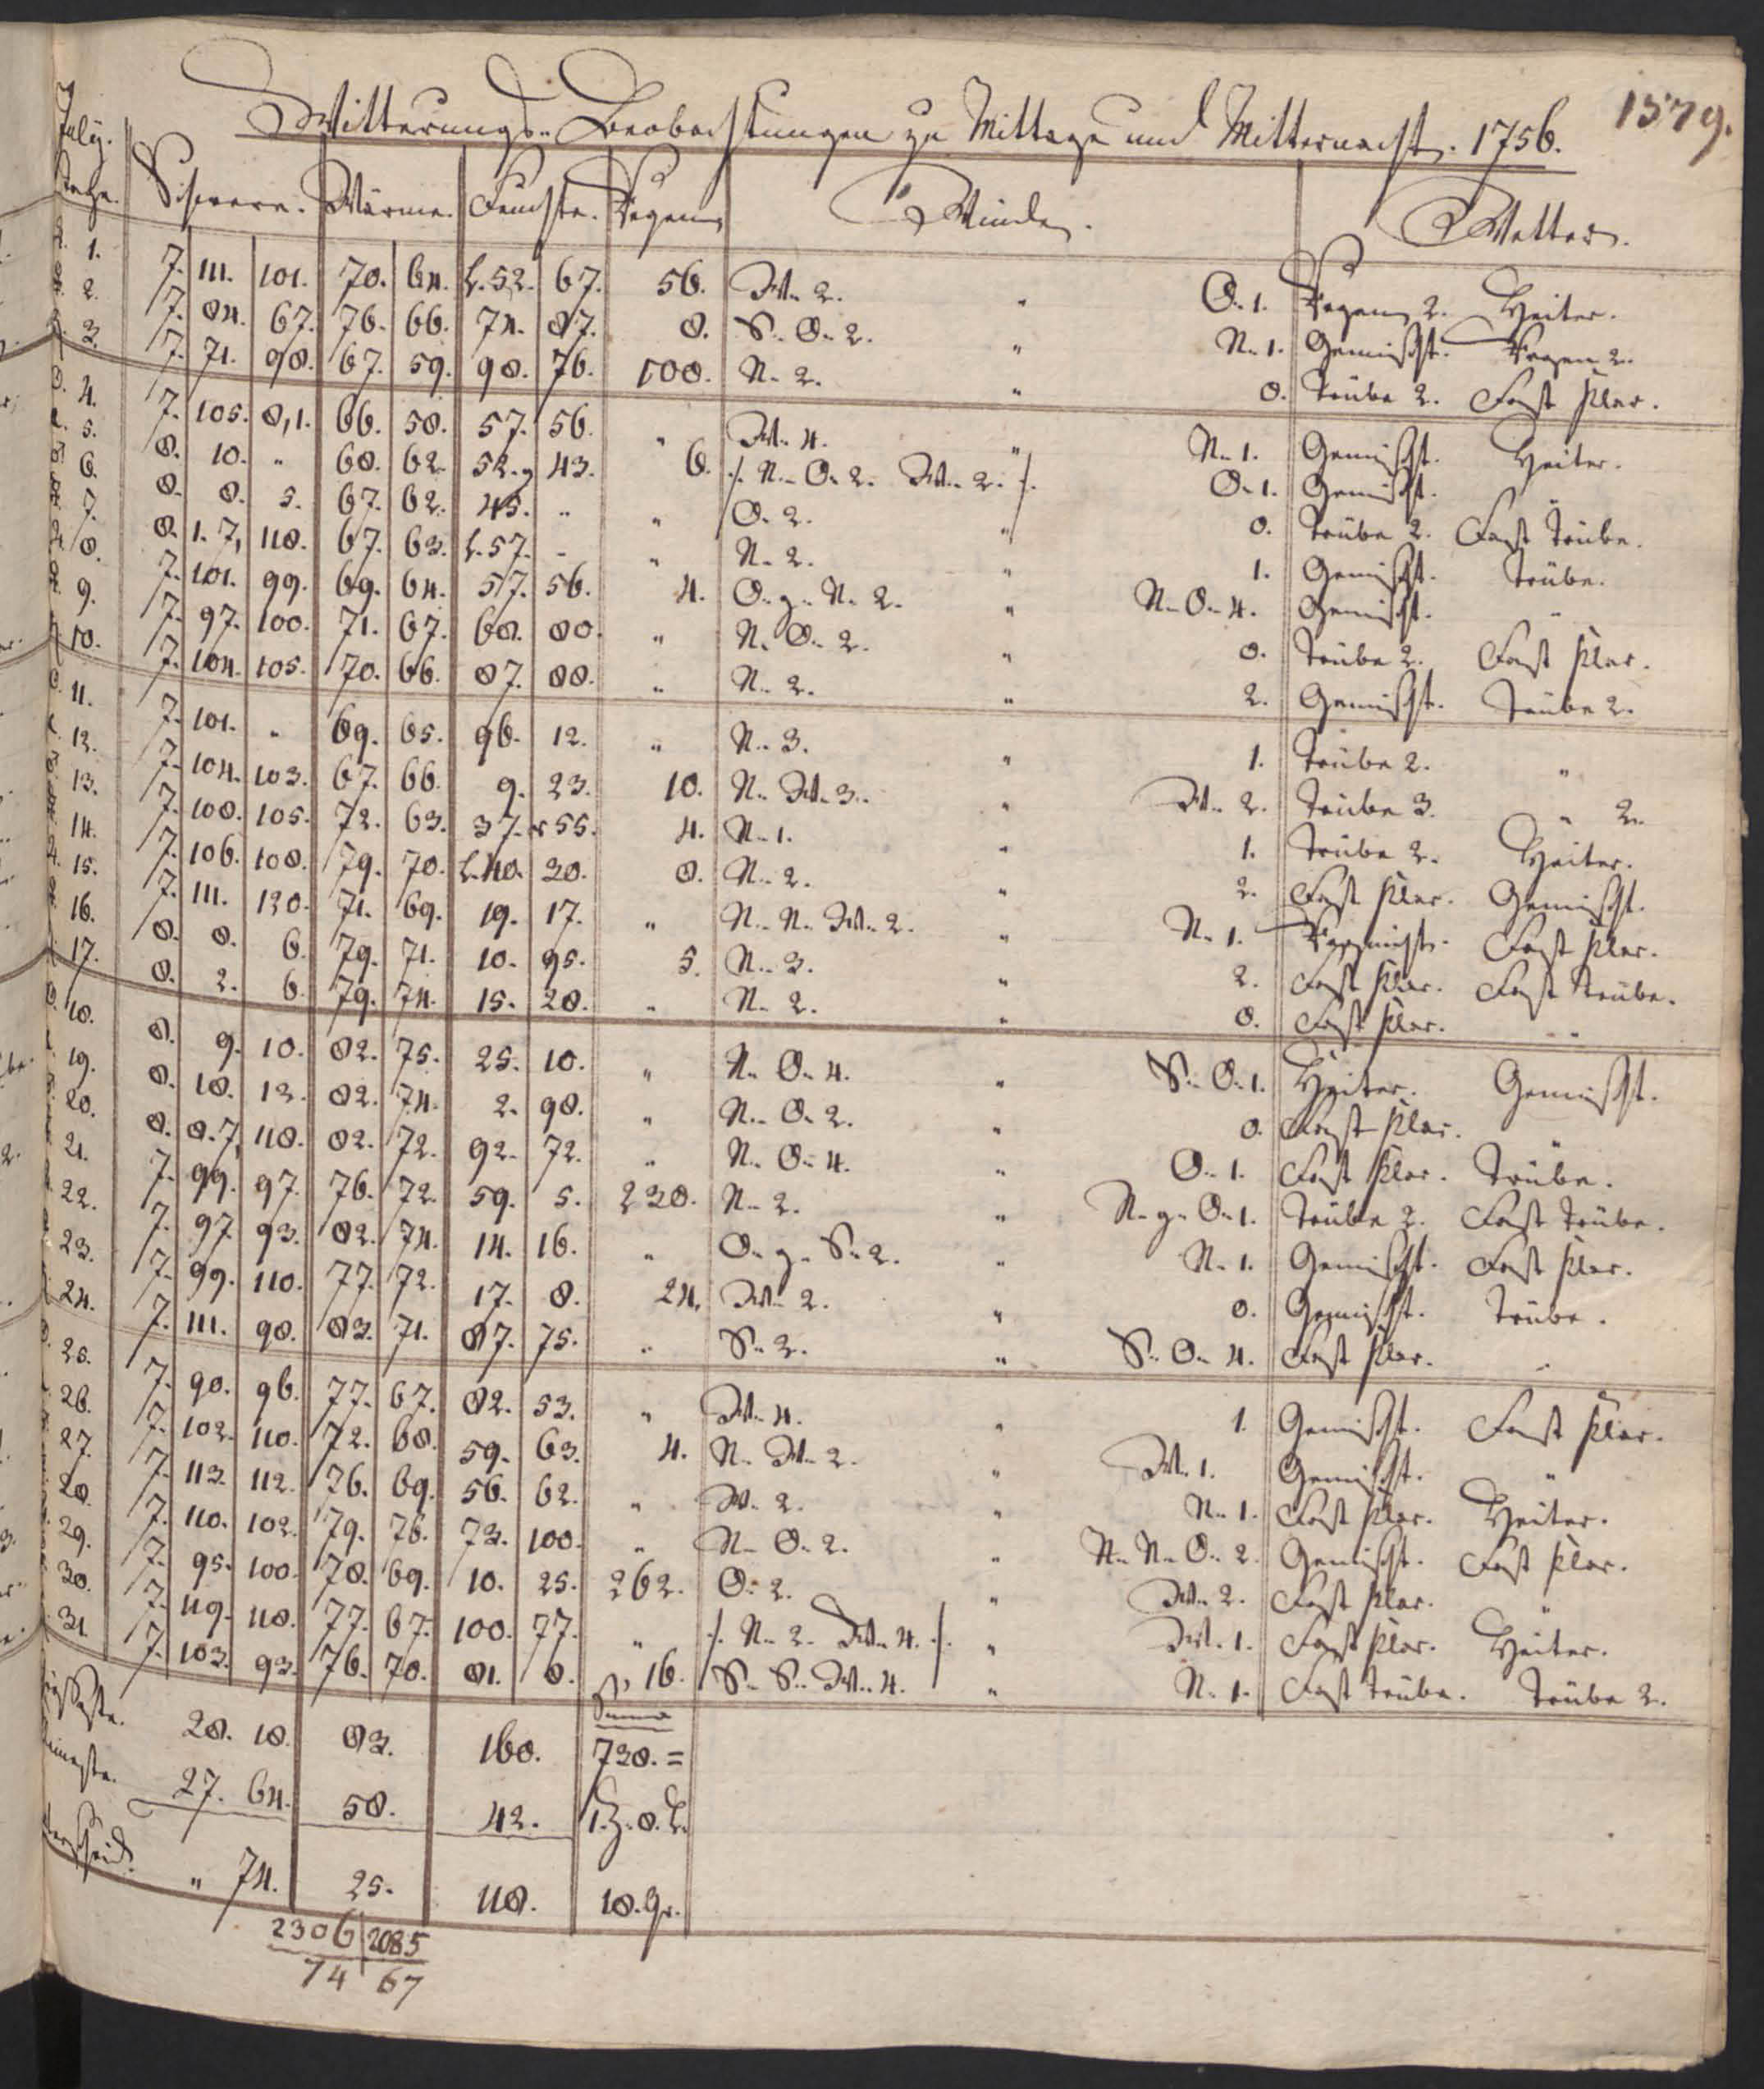 1579.
Witterungs-Beobachtungen zu Mittage und Mitternacht. 1756.
July.
Tage. Schwere. Wärme. Feuchte. Regen Winde. Wetter.
1. 7. 111. 101. 70. 64. L. 52. 67. 56. W. 2. " O. 1. Regen 2. Heiter.
2. 7. 84. 67. 76. 66. 74. 87. 8. S. O. 2. " N. 1. Gemischt. Regen 2.
3. 7. 71. 98. 67. 59. 98. 76. 108. N. 2. " 0. Trübe 2. Fast klar.
4. 7. 105. 8,1. 66. 58. 57. 56. " W. 4. " N. 1. Gemischt. Heiter.
5. 8. 10. " 68. 62. 52. 43. 6. ./. N. O. 2. W. 2. ./. O. 1. Gemischt. "
6. 8. 8. 5. 67. 62. 45. " " O. 2. " 0. Trübe 2. Fast Trübe.
7. 8. 1. 7, 118. 67. 63. L. 57. " " N. 2. " 1. Gemischt. Trübe.
8. 7. 101. 99. 69. 64. 57. 56. 4. O. g. N. 2. " N. O. 4. Gemischt. "
9. 7. 97. 100. 71. 67. 68. 80. " N. O. 2. " 0. Trübe 2. Fast klar.
10. 7. 104. 105. 70. 66. 87. 88. " N. 2. " 2. Gemischt. Trübe 2.
11. 7. 101. " 69. 65. 96. 12. " N. 3. " 1. Trübe 2. "
12. 7. 104. 103. 67. 66. 9. 23. 10. N. W. 3. " W. 2. Trübe 3. " 2.
13. 7. 108. 105. 72. 63. 37. r 55. 4. N. 1. " 1. Trübe 2. Heiter.
14. 7. 106. 108. 79. 70. L. 40. 20. 8. N. 2. " 2. Fast klar. Gemischt.
15. 7. 111. 120. 71. 69. 19. 17. " N. N. W. 2. " N. 1. Vermischt. Fast klar.
16. 8. 8. 6. 79. 71. 10. 95. 5. N. 3. " 2. Fast klar. Fast Trübe.
17. 8. 2. 6. 79. 74. 15. 28. " N. 2. " 0. Fast klar. "
18. 8. 9. 10. 82. 75. 25. 10. " N. O. 4. " S. O. 1. Heiter. Gemischt.
19. 8. 18. 13. 82. 74. 2. 98. " N. O. 2. " 0. Fast klar. "
20. 8. 8. 7, 118. 82. 72. 92. 72. " N. O. 4. " O. 1. Fast klar. Trübe.
21. 7. 99. 97. 76. 72. 59. 5. 230. N. 2. " N. g. O. 1. Trübe 2. Fast Trübe.
22. 7. 97. 93. 82. 74. 14. 16. " O. g. S. 2. " N. 1. Gemischt. Fast klar.
23. 7. 99. 110. 77. 72. 17. 8. 24. W. 2. " 0. Gemischt. Trübe.
24. 7. 111. 98. 83. 71. 87. 75. " S. 2. " S. O. 4. Fast klar. "
25. 7. 90. 96. 77. 67. 82. 53. " W. 4. " 1. Gemischt. Fast klar.
26. 7. 102. 110. 72. 68. 59. 63. 4. N. W. 2. " W. 1. Gemischt. "
27. 7. 113. 112. 76. 69. 56. 62. " W. 2. " N. 1. Fast klar. Heiter.
28. 7. 110. 102. 79. 76. 73. 100. " N. O. 2. " N. N. O. 2. Gemischt. Fast klar.
29. 7. 95. 100. 78. 69. 10. 25. 262. O. 2. " W. 2. Fast klar. "
30. 7. 119. 118. 77. 67. 100. 77. " ./. N. 2. W. 4. ./. " W. 1. Fast klar. Heiter.
31. 7. 103. 93. 76. 70. 81. 8. 16. S. S. W. 4. " N. 1. Fast Trübe. Trübe 2.
Summa
28. 18. 83. 160. 738. =
27. 64. 58. 42. 1. Z. 8. L.
" 74. 25. 118. 18. Gr.
2306 2085
74 67